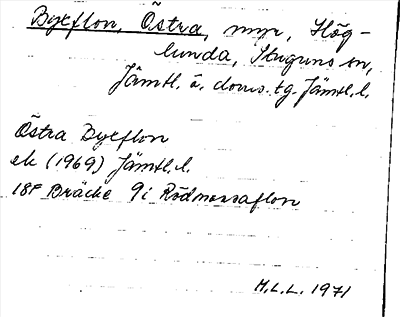 Bytflon, Östra, myr, Hög-
lunda, Stuguns sn,
Jämtl. ö. doms. tg. Jämtl. l.
Östra Bytflon
ek (1969) Jämtl. l.
18F Bräcke 9i Rödmossaflon
M.L.L. 1971